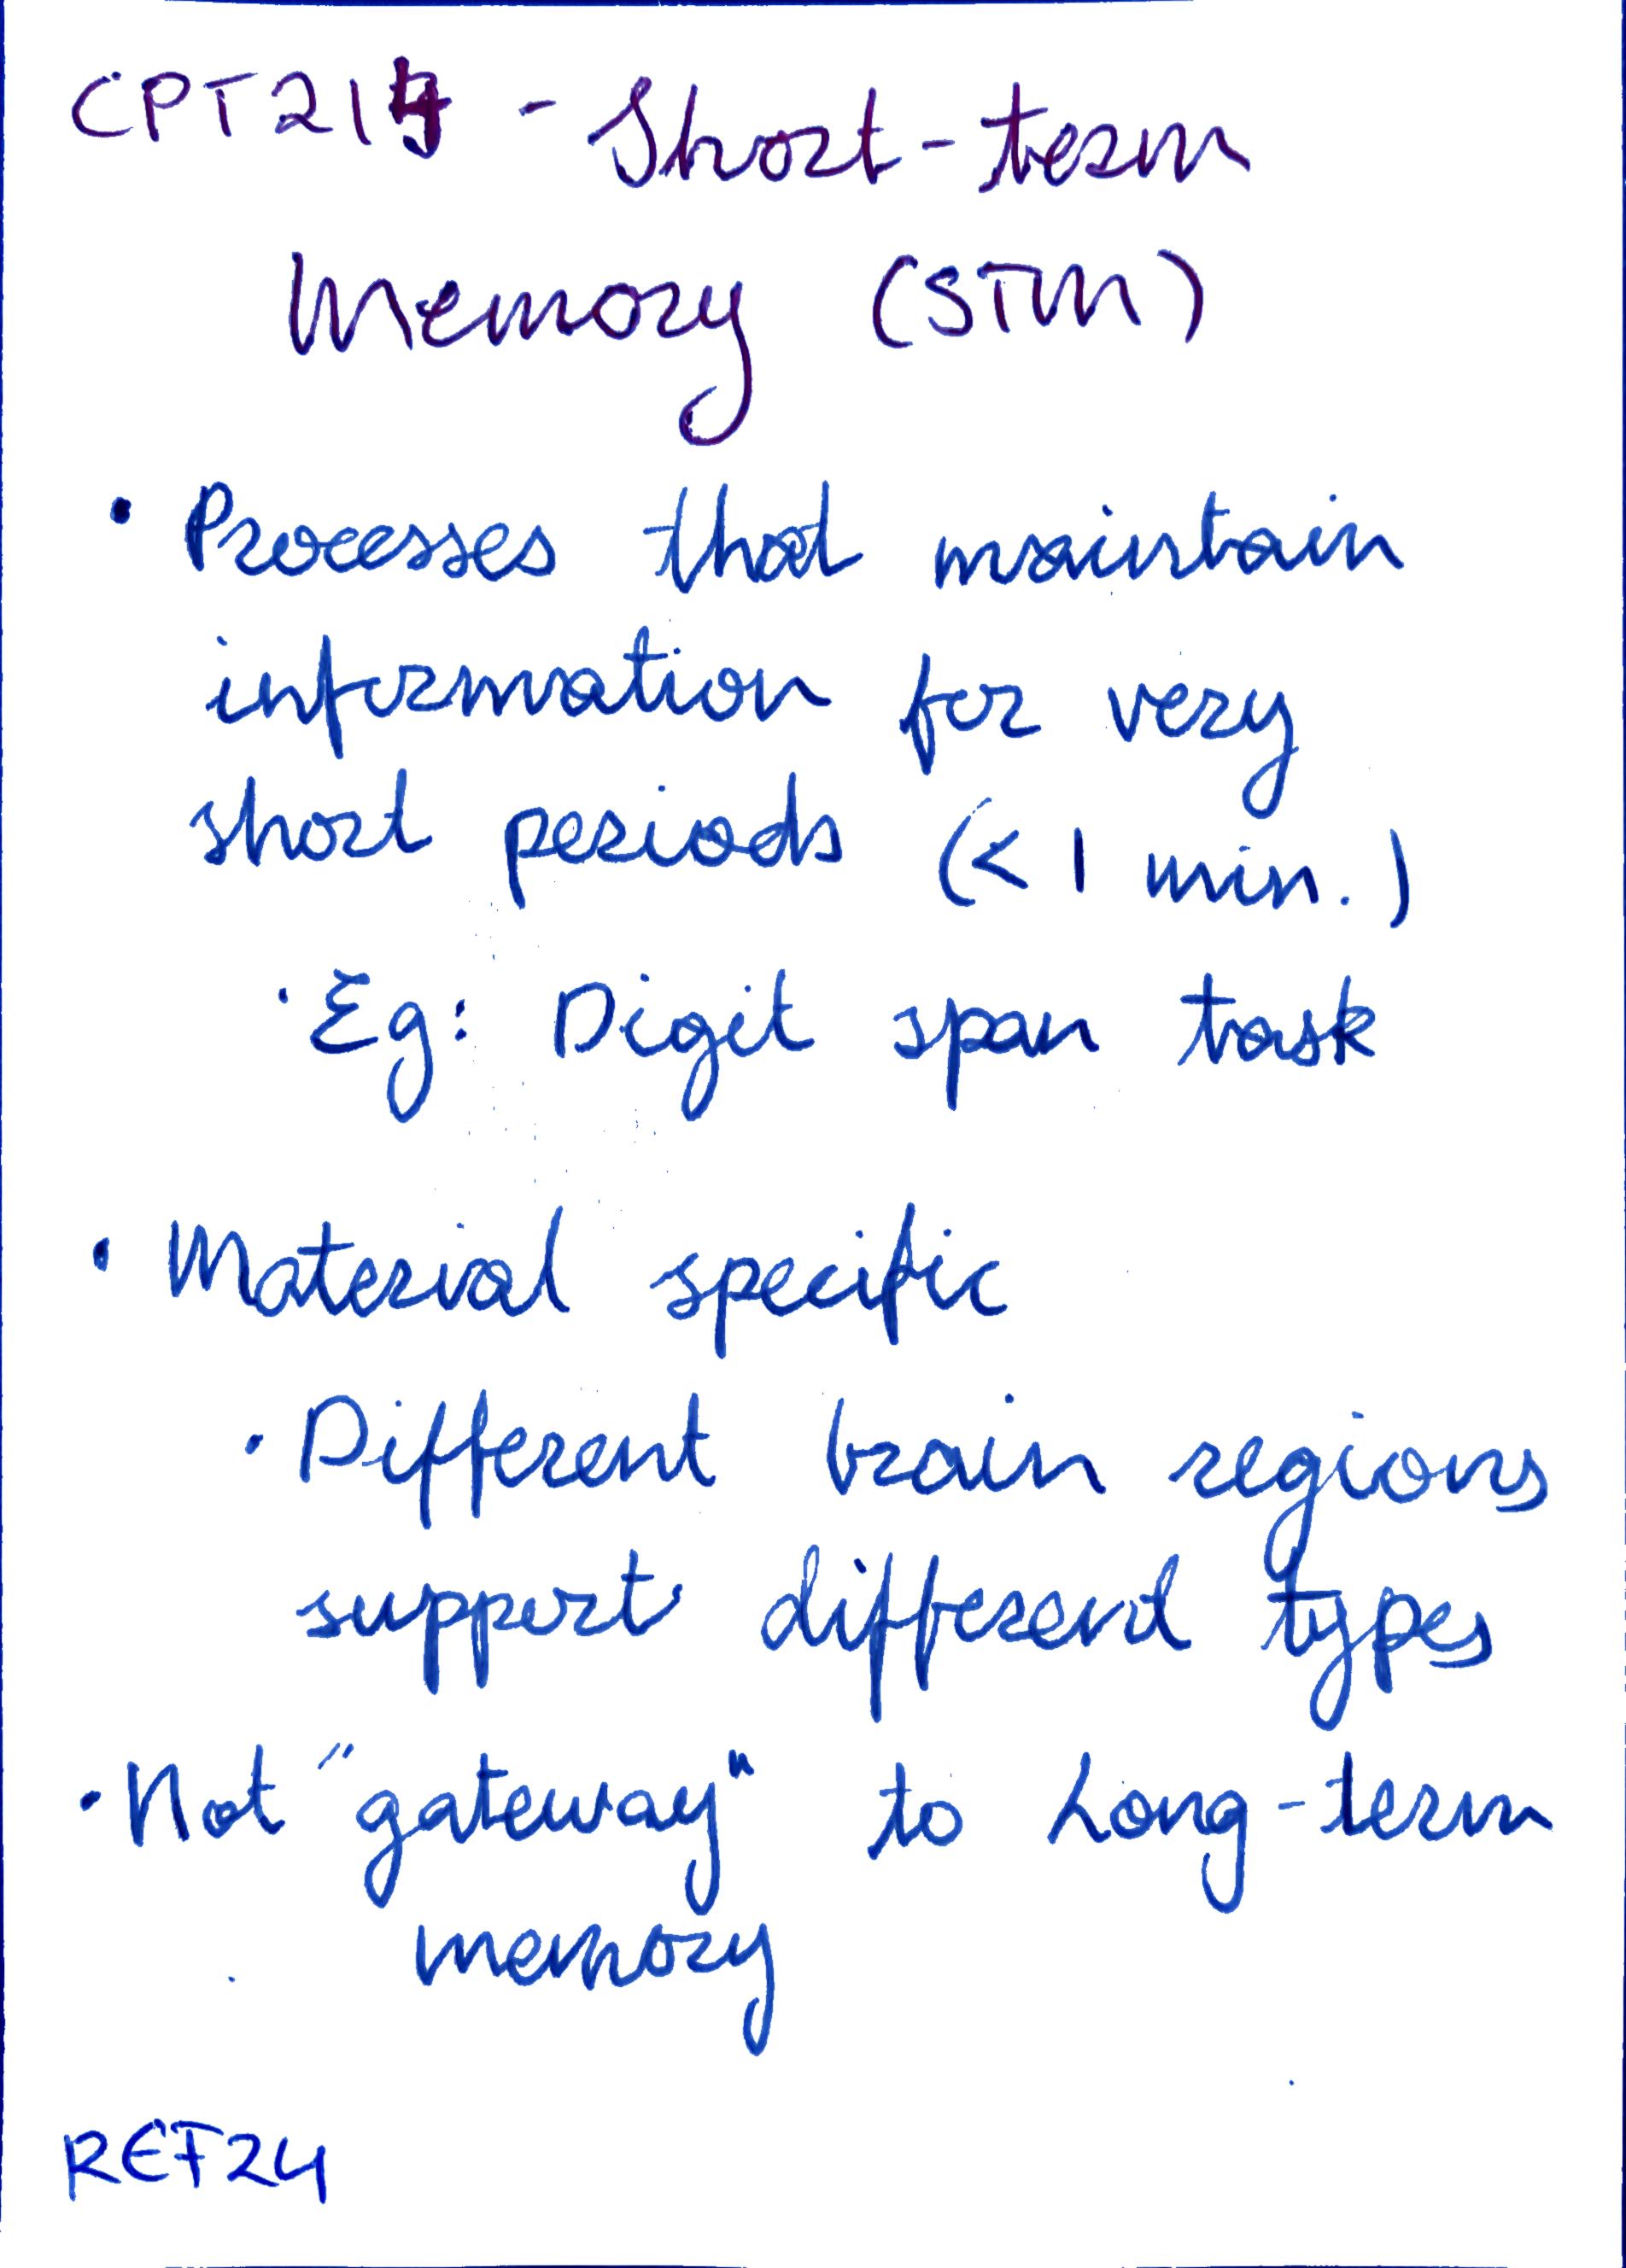 CPT214 - Short-term
Memory (STM)
• Processes that maintain
information for very
short periods (< 1 min.)
• Eg: Digit span task
• Material specific
• Different brain regions
support different types
• Not "gateway" to Long-term
memory
REF24